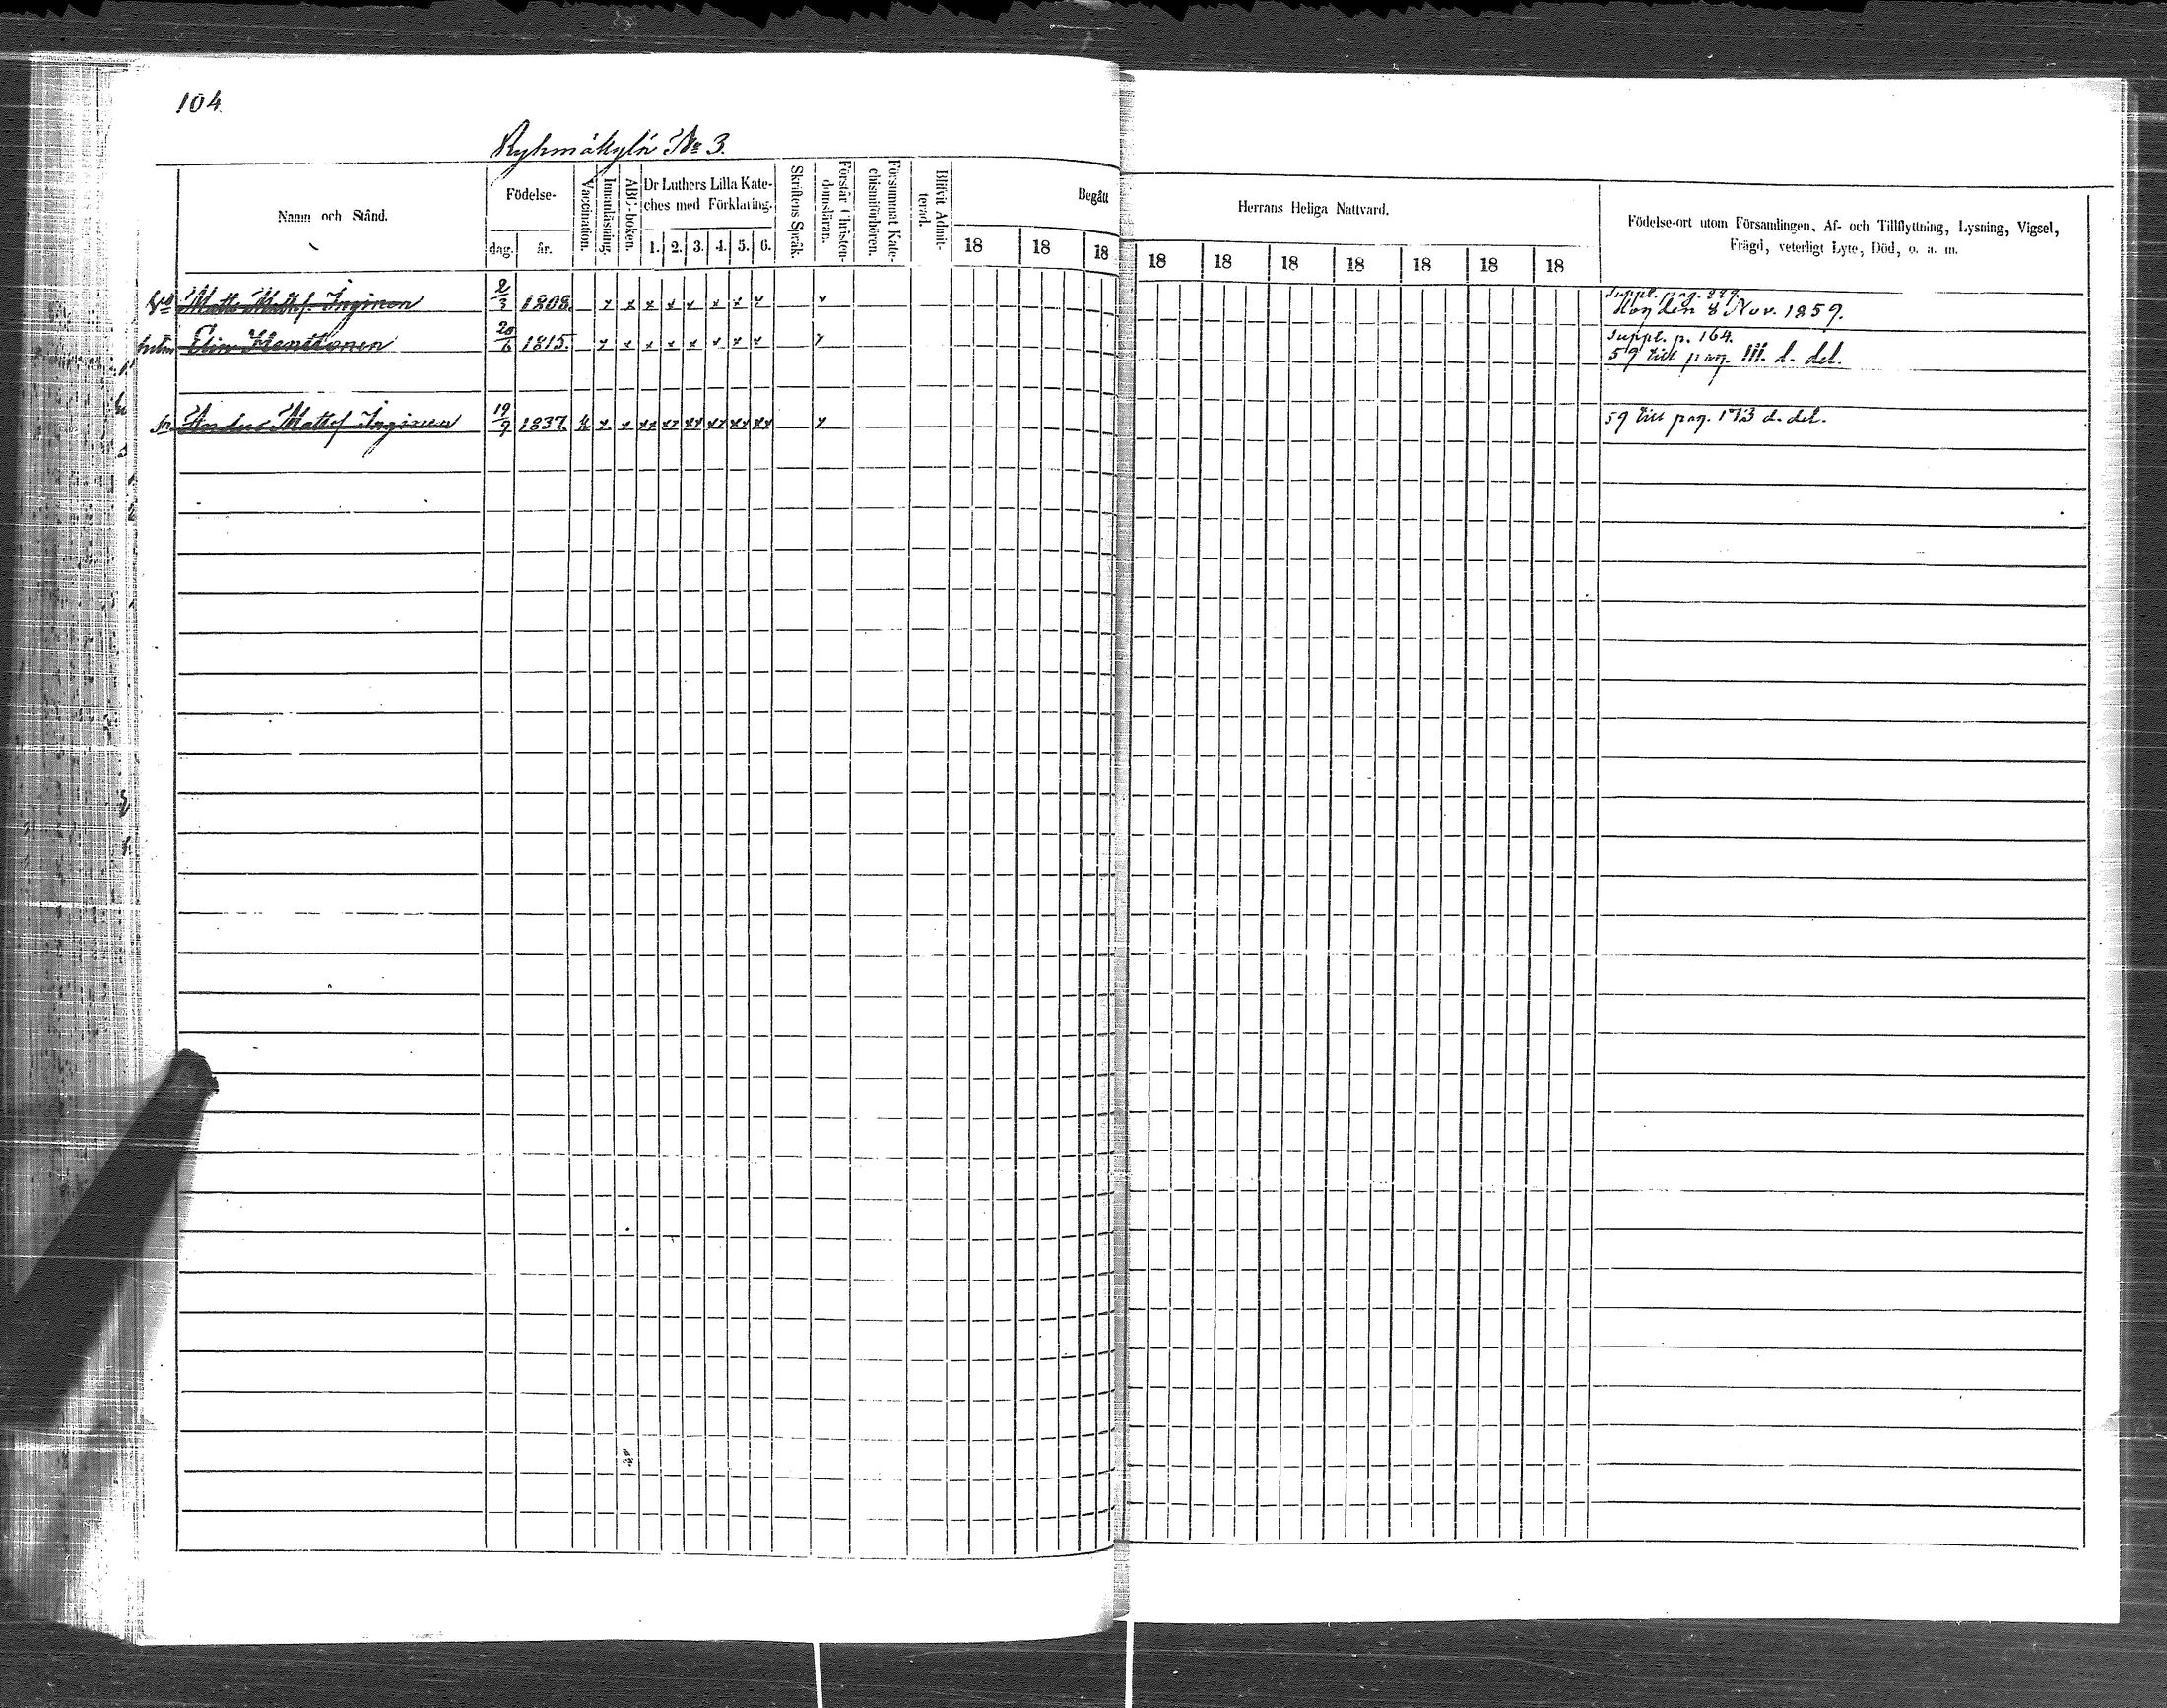 104.
Ryhmäkylä No 3.
Namn och Stånd.
Födelse-
dag. år.
Vaccination.
Innanläsning.
ABC-boken.
Dr Luthers Lilla Kate-
ches med Förklaring.
1. 2. 3. 4. 5. 6.
Skriftens Språk.
Förstår Christen-
domsläran.
Försummat Kate-
chismiförhören.
Blifvit Admit-
terad.
Begått
Herrans Heliga Nattvard.
18 18 18 18 18 18 18 18 18 18
Födelse-ort utom Församlingen, Af- och Tillflyttning, Lysning, Vigsel,
Frägd, veterligt Lyte, Död, o. a. m.
Suppl. pag. 229.
Matts Mattsf. Inginen 2/3 1808. x x x x x x x x x den 8 Nov. 1859.
Suppl. p. 164.
Elin 20/6 1815. x x x x x x x x x 59 till pag. III. d. del.
Anders Mattsf Inginen 19/9 1837. x x xx xx xx xx xx xx x 59 till pag. 173 d. del.